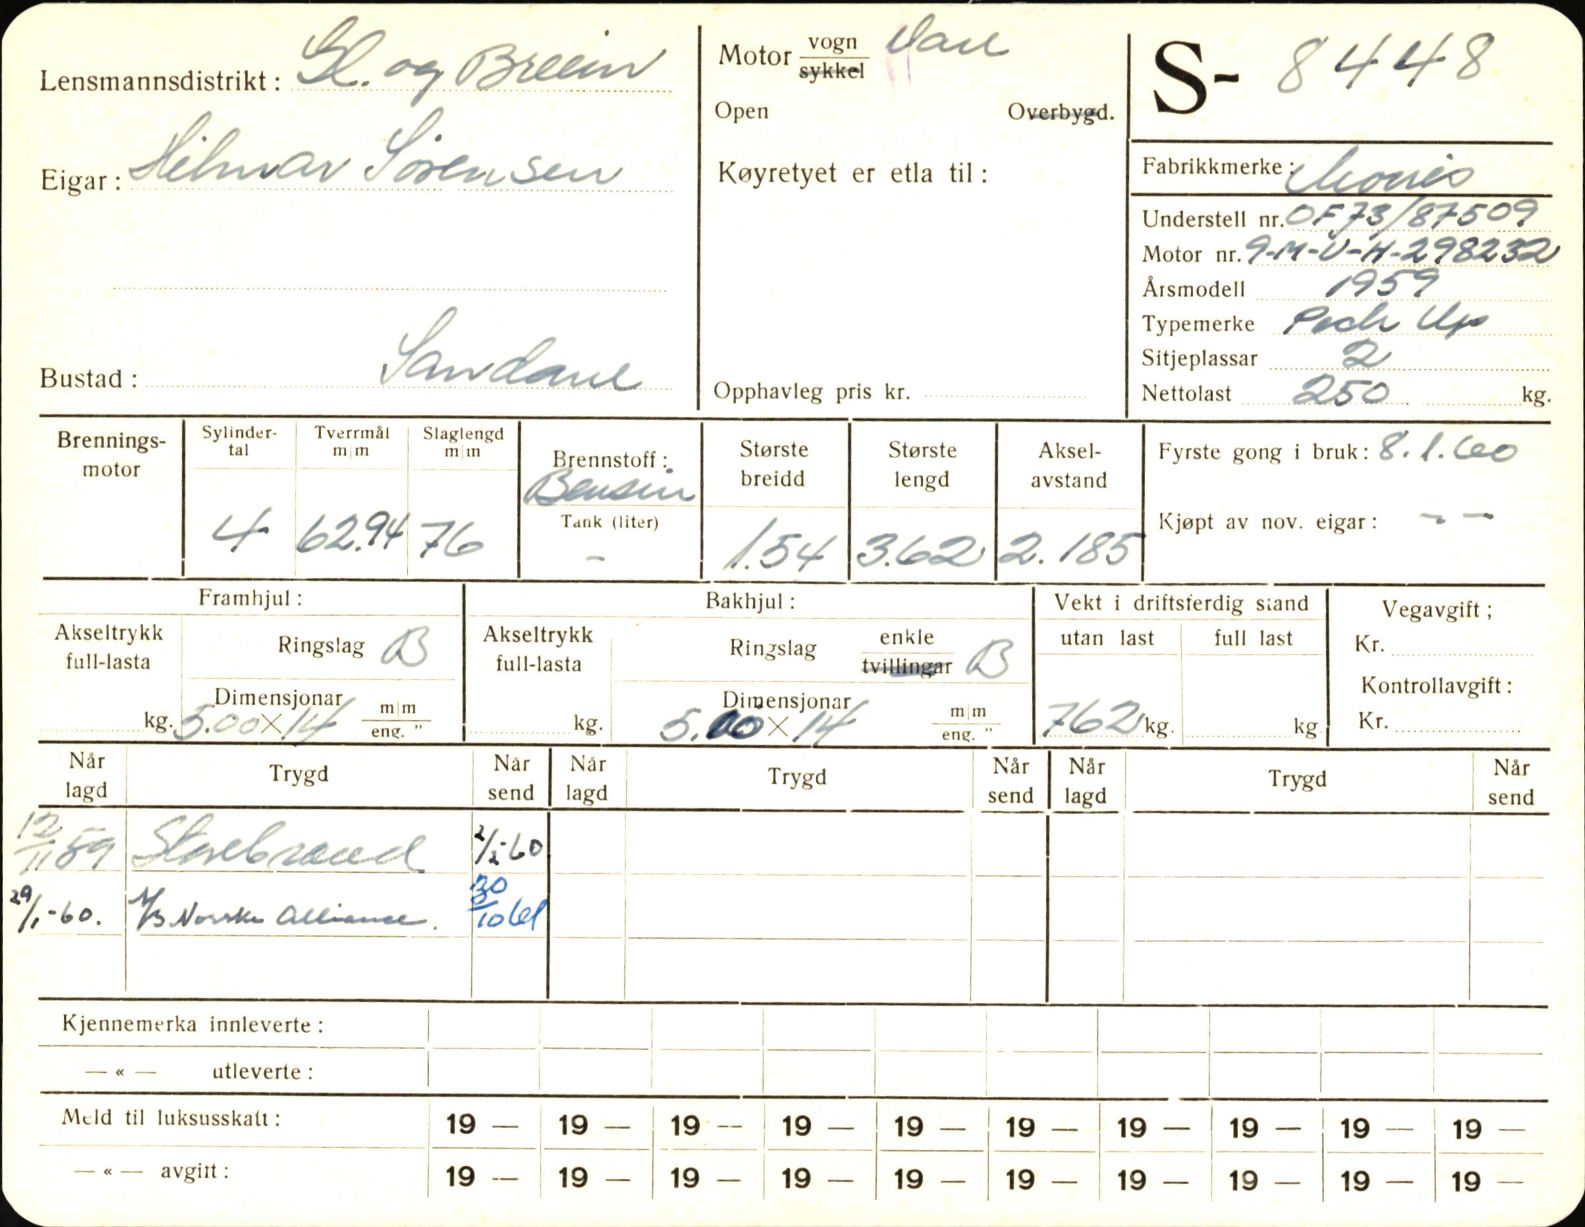 Lensmannsdistrikt: Gl. og Breim
Eigar: Hilmar Sörensen
Bustad: Sandane
Motor vogn sykkel Vare
Open Overbygd.
Køyretyet er etla til:
Opphavleg pris kr.
S- 8448
Fabrikkmerke: Morris
Understell nr. OF73/87509
Motor nr. 9-M-U-H-298232
Årsmodell 1959
Typemerke Pick Up
Sitjeplassar 2
Nettolast 250 kg.
Brennings-motor
Sylinder-tal 4
Tverrmål m|m 62.94
Slaglengd m|m 76
Brennstoff: Bensin
Tank (liter) -
Største breidd 1.54
Største lengd 3.62
Aksel-avstand 2.185
Fyrste gong i bruk: 8.1.60
Kjøpt av nov. eigar: - -
Framhjul:
Akseltrykk full-lasta kg.
Ringslag B
Dimensjonar 5.00 × 14 m|m eng. "
Bakhjul:
Akseltrykk full-lasta kg.
Ringslag enkle tvillingar B
Dimensjonar 5.00 × 14 m|m eng. "
Vekt i driftsferdig stand
utan last 762 kg.
full last kg
Vegavgift;
Kr.
Kontrollavgift:
Kr.
Når lagd Trygd Når send Når lagd Trygd Når send Når lagd Trygd Når send
12/11 59 Storebrand 2/2-60
29/1-60. A/S Norske Alliance. 30/10 61
Kjennemerka innleverte:
— « — utleverte:
Meld til luksusskatt: 19 — 19 — 19 — 19 — 19 — 19 — 19 — 19 — 19 — 19 —
— « — avgift: 19 — 19 — 19 — 19 — 19 — 19 — 19 — 19 — 19 — 19 —